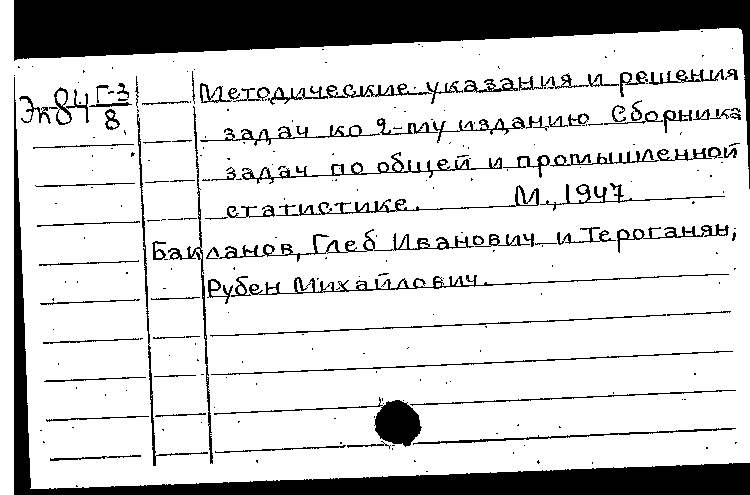 Эк84 Г-3/8
Методические указания и решения
задач ко 2-му изданию Сборника
задач по общей и промышленной
статистике. М., 1947.
Бакланов, Глеб Иванович и Тероганян,
Рубен Михайлович.